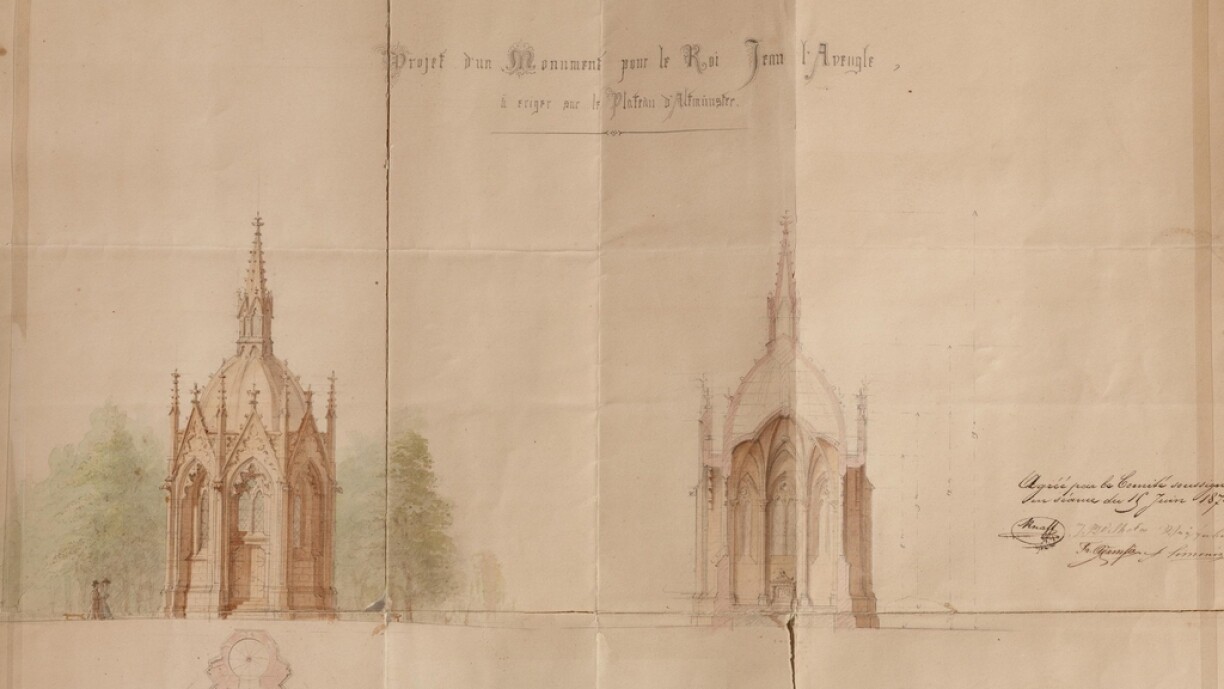 Projet d'un Monument pour le Roi Jean l'Aveugle,
à eriger sur le Plateau d'Altmünster.
Agréé par le Comité soussign
en séance du 15 Juin 187